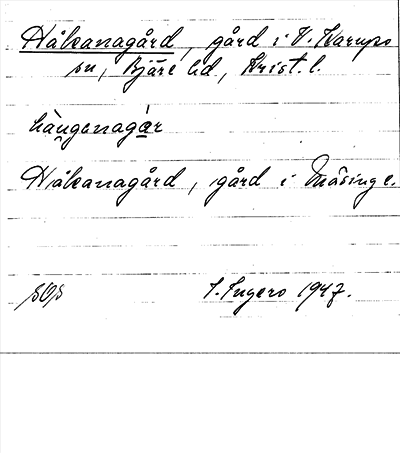 Håkanagård, gård i V. Karups
sn, Bjäre hd, Krist. l.
hàu̯genagár
Håkanagård, gård i Mäsinge.
SOS S. Ingers 1947.